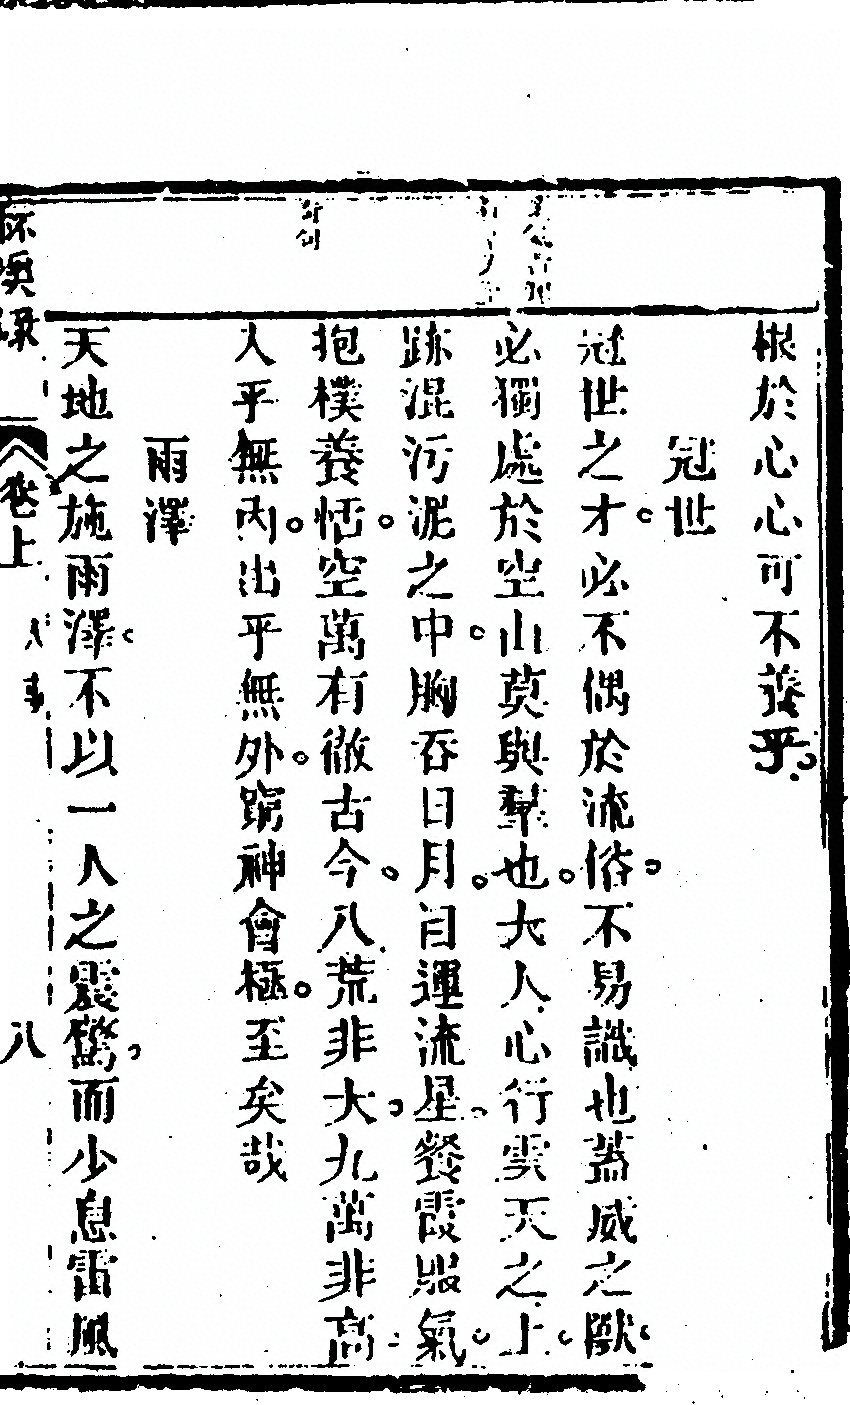 根於心心可不養乎
冠世
冠世之才必不偶於流俗不易識也蓋威之獸
必獨處於空山莫與羣也大人心行雲天之上
跡混污泥之中胸吞日月目運流星餐霞服氣
抱樸養恬空萬有徹古今八荒非大九萬非高
入乎無內出乎無外窮神會極至矣哉
雨澤
天地之施雨澤不以一人之震驚而少息雷風
卷上
人事
八
奇句